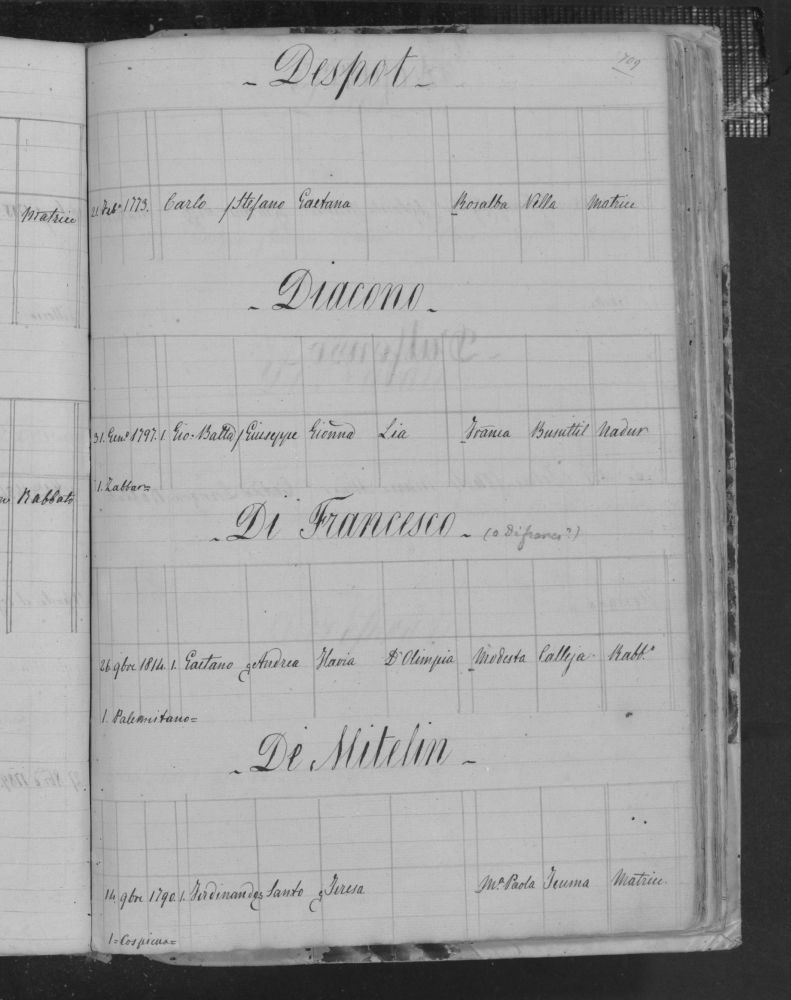 709
- Despot -
Matrice
21. Feb.º 1773. Carlo / Stefano Gaetana Rosalba Vella Matrice
- Diacono -
31. Gen.º 1797. 1. Gio: Batta / Giuseppe Gionna Lia Franca Busuttil Nadur
1. Zabbar=
Rabbato
- Di Francesco -
26 9bre 1814. 1. Gaetano q Andrea Flavia D'Olimpia Modesta Calleja Rabb.º
1. Palermitano=
- De Mitelin -
14 9bre 1790. 1. Ferdinando q Santo q Teresa M.ª Paola Teuma Matrice.
1= Cospicua=